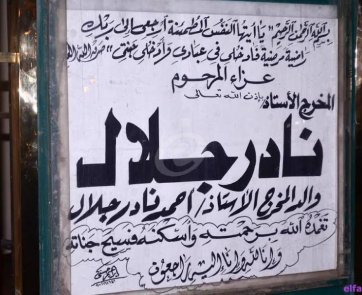 بسم الله الرحمن الرحيم "يا أيتها النفس المطمئنة ارجعي إلى ربك
راضية مرضية فادخلي في عبادي وادخلي جنتي" صدق الله العظيم
عزاء المرحوم
بإذن الله تعالى
المخرج الأستاذ/
نادر جلال
والد المخرج الأستاذ/ أحمد نادر جلال
تغمده الله برحمته وأسكنه فسيح جناته
"وإنا لله وإنا إليه راجعون"
elfa